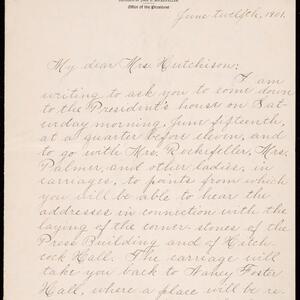 Office of the President
June twelfth, 1901.
My dear Mrs. Hutchison:
I am
writing to ask you to come down
to the President's house on Sat-
urday morning, June fifteenth,
at a quarter before eleven, and
to go with Mrs. Rockefeller, Mrs.
Palmer and other ladies, in
carriages, to points from which
you will be able to hear the
addresses in connection with the
laying of the corner stones of the
Press Building and of Hitch-
cock Hall. The carriage will
take you back to Nancy Foster
Hall, where a place will be re-